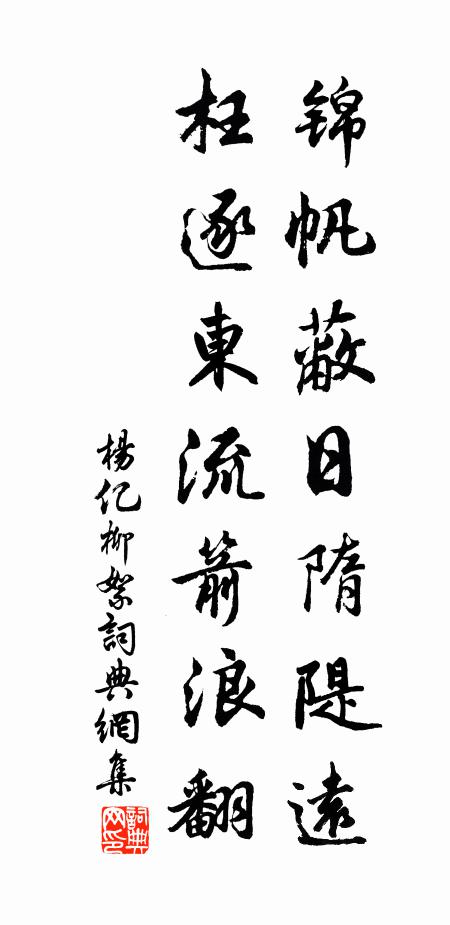 锦帆蔽日隋隄遠
枉逐東流箭浪翻
楊亿柳絮詞典網集
詞典网印